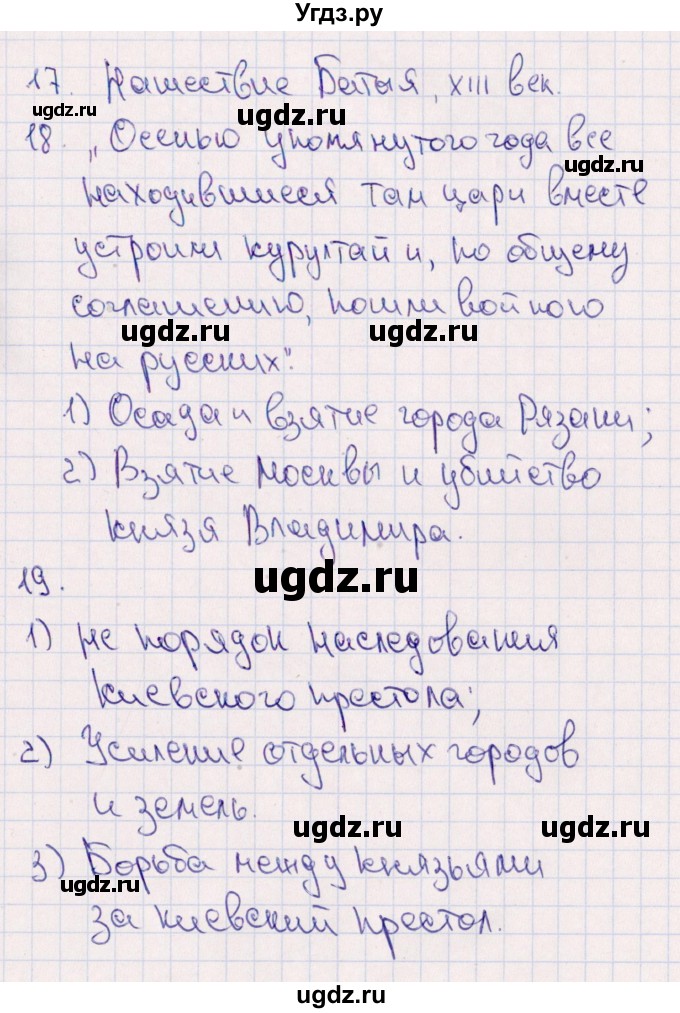 Угдз.ру
17. Нашествие Батыя, XIII век.
ugdz.ru ugdz.ru
18. „Осенью упомянутого года все
ugdz.ru
находившиеся там цари вместе
устроили курултай и, по общему
соглашению, пошли войною
ugdz.ru ugdz.ru
на русских".
1) Осада и взятие города Рязани;
2) Взятие Москвы и убийство
князя Владимира.
ugdz.ru
19.
1) не порядок наследования
киевского престола;
2) Усиление отдельных городов
и земель.
ugdz.ru ugdz.ru
3) Борьба между князьями
ugdz.ru
за киевский престол.
ugdz.ru